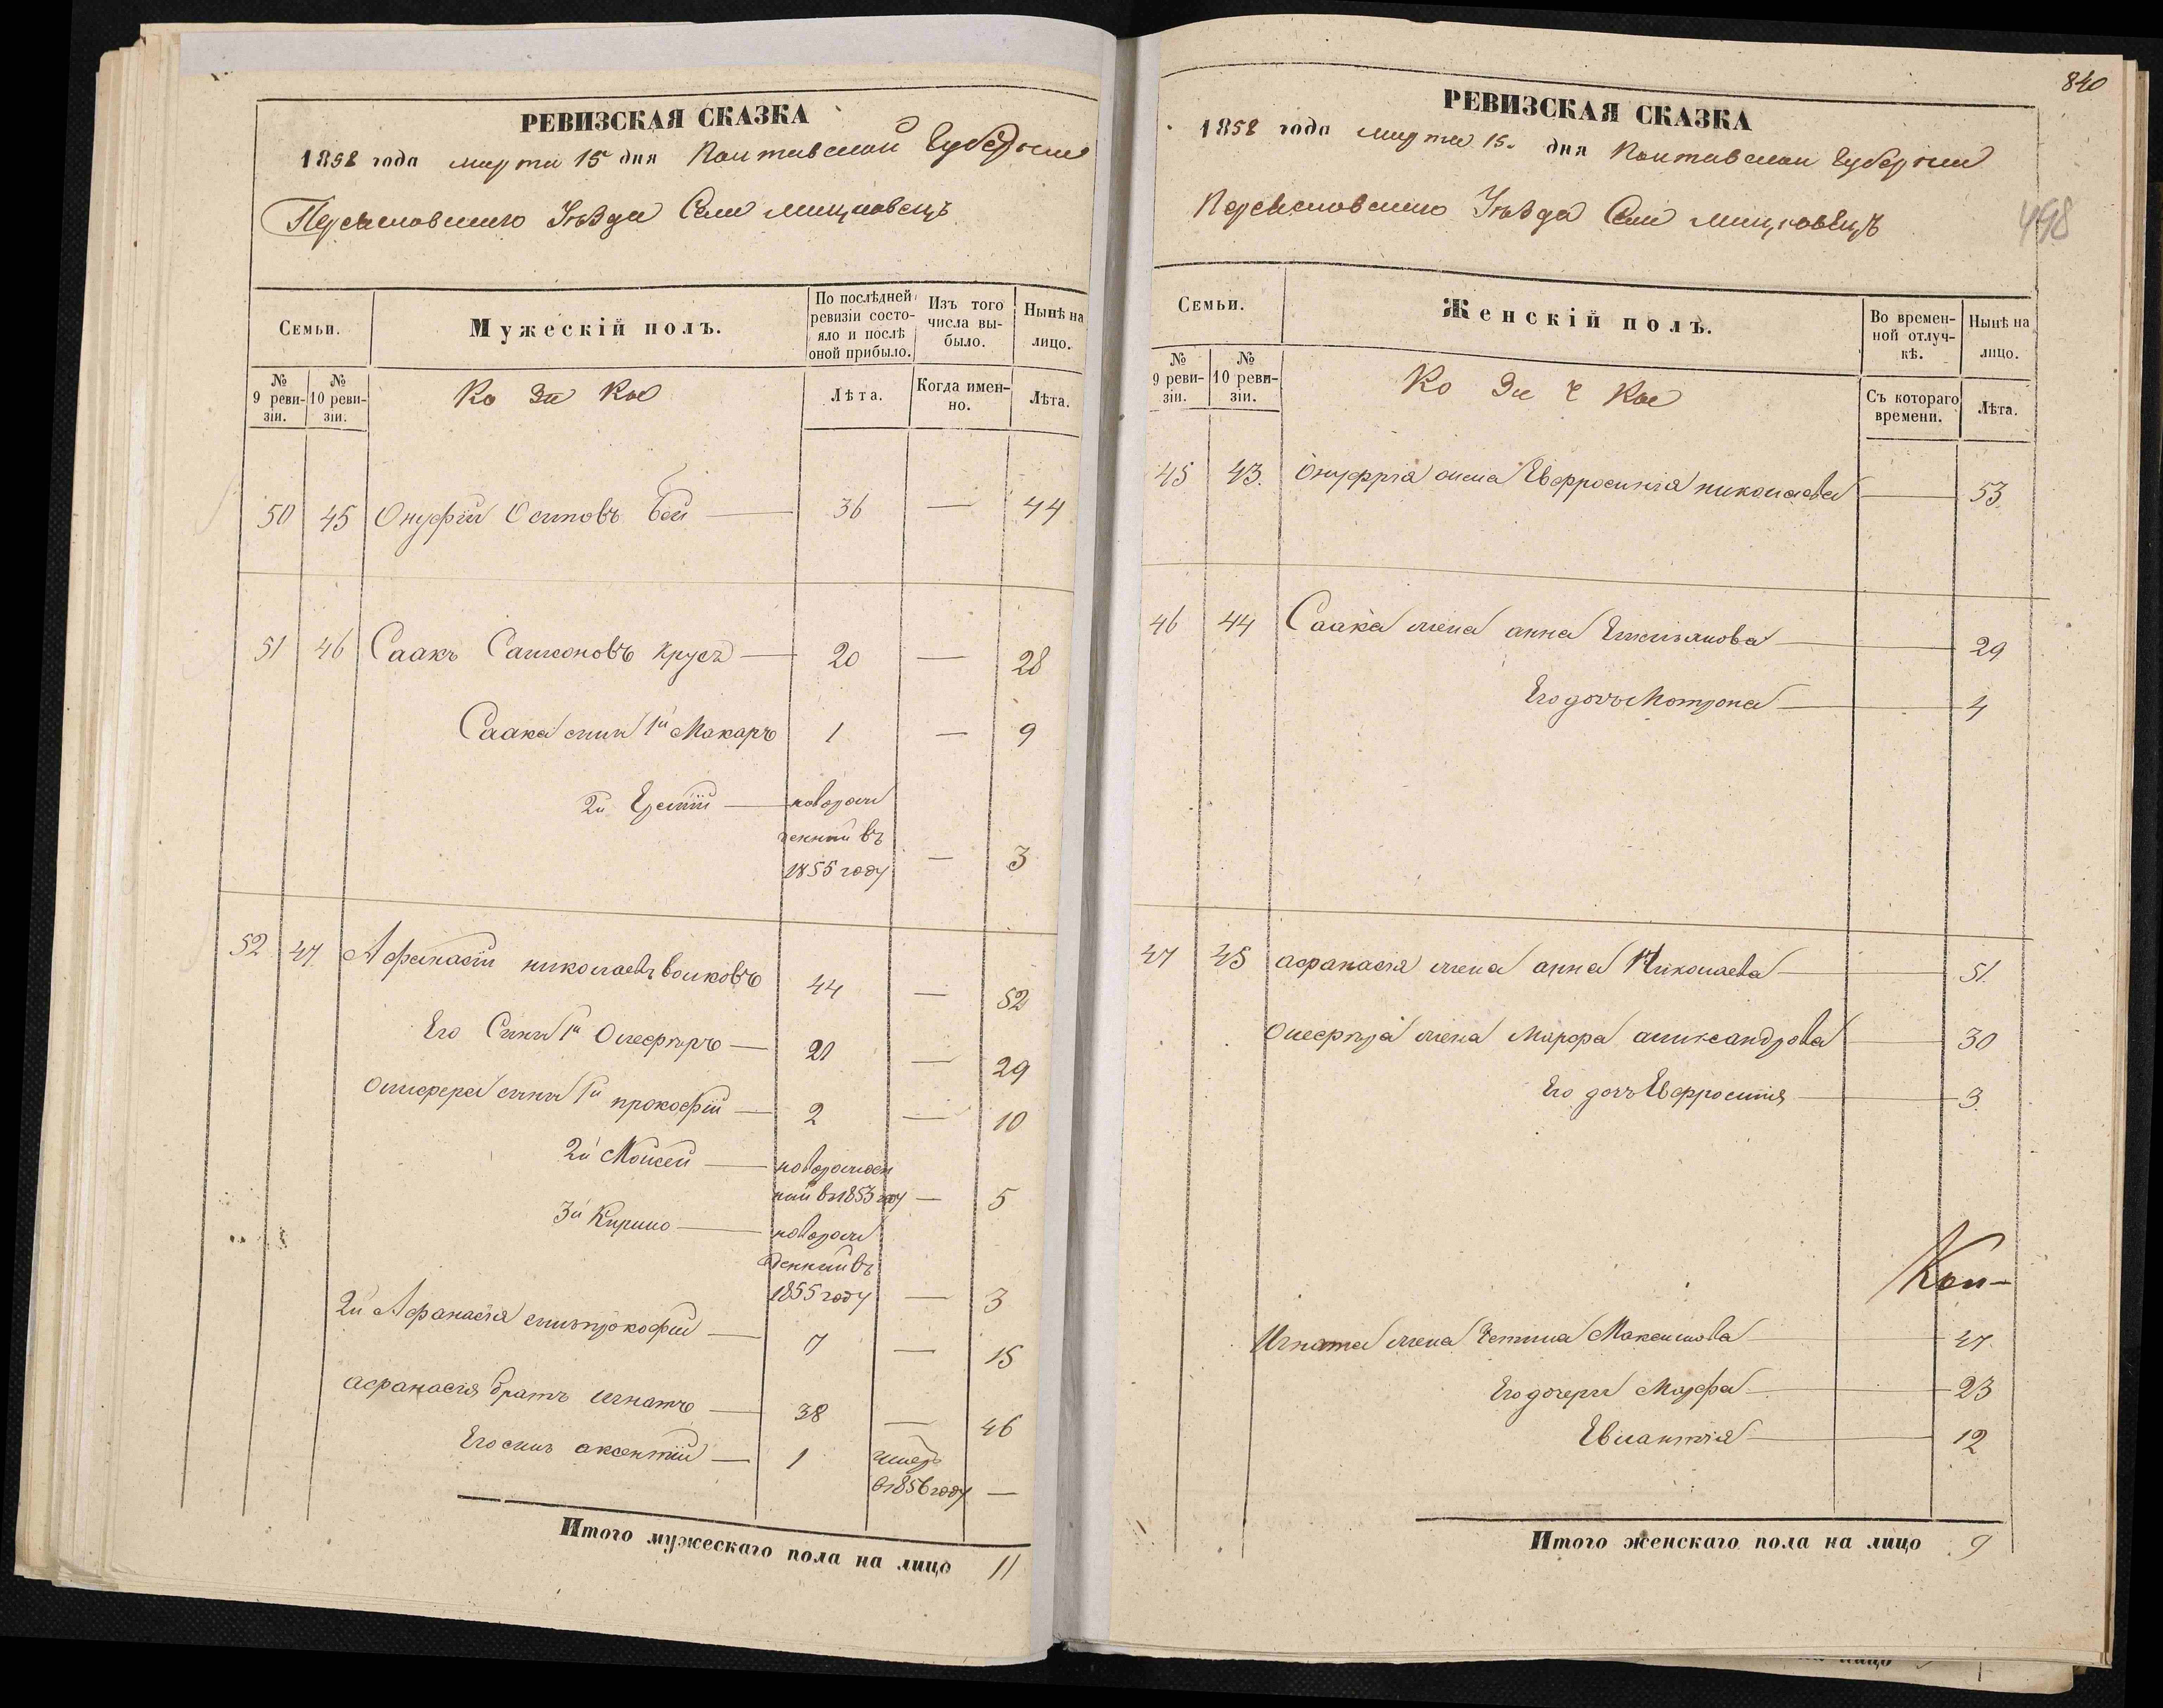 РЕВИЗСКАЯ СКАЗКА
1858 года марта 15 дня Полтавской Губернии
Переяславского Уѣзда Села мицловецъ
Семьи.
Мужескій полъ.
По послѣдней ревизіи состояло и послѣ оной прибыло.
Изъ того числа выбыло.
Нынѣ на лицо.
№ 9 ревизіи.
№ 10 ревизіи.
Козаки
Лѣта.
Когда именно.
Лѣта.
50 45 Онуфрій Осиповъ Бей — 36 — 44
51 46 Саакъ Самсоновъ Крусъ — 20 — 28
Саака сынъ 1й Макаръ 1 — 9
2й — новорож
денный въ
1855 году — 3
52 47 Афанасій николаевъ волковъ 44 — 52
Его Сынъ 1й Олеферъ — 21 — 29
Олефера сынъ 1й прокофій — 2 — 10
2й Моисей — новорожден
ный в 1853 году — 5
3й Кирило — новорож
денный въ
1855 году — 3
2й Афанасія сынъ прокофій — 7 — 15
афанасія братъ игнатъ — 38 — 46
Его сынъ аксентій — 1 умеръ
в 1856 году —
Итого мужескаго пола на лицо 11
840
498
РЕВИЗСКАЯ СКАЗКА
1858 года марта 15. дня Полтавской Губерніи
Переяславского Уѣзда Села мицловецъ
Семьи.
Женскій полъ.
Во временной отлучкѣ.
Нынѣ на лицо.
№ 9 ревизіи.
№ 10 ревизіи.
Козачки
Съ котораго времени.
Лѣта.
45 43. Онуфрія жена Евфросинія николаева — 53
46 44 Саака жена анна — 29
Его дочь Мотрона — 4
47 45 афанасія жена анна Николаева — 51.
Олефира жена Марфа александрова — 30
Его дочь Евфросинія — 3.
Кол-
Игната жена Максимова — 47.
Его дочери Марфа — 23
Евлантія — 12
Итого женскаго пола на лицо 9